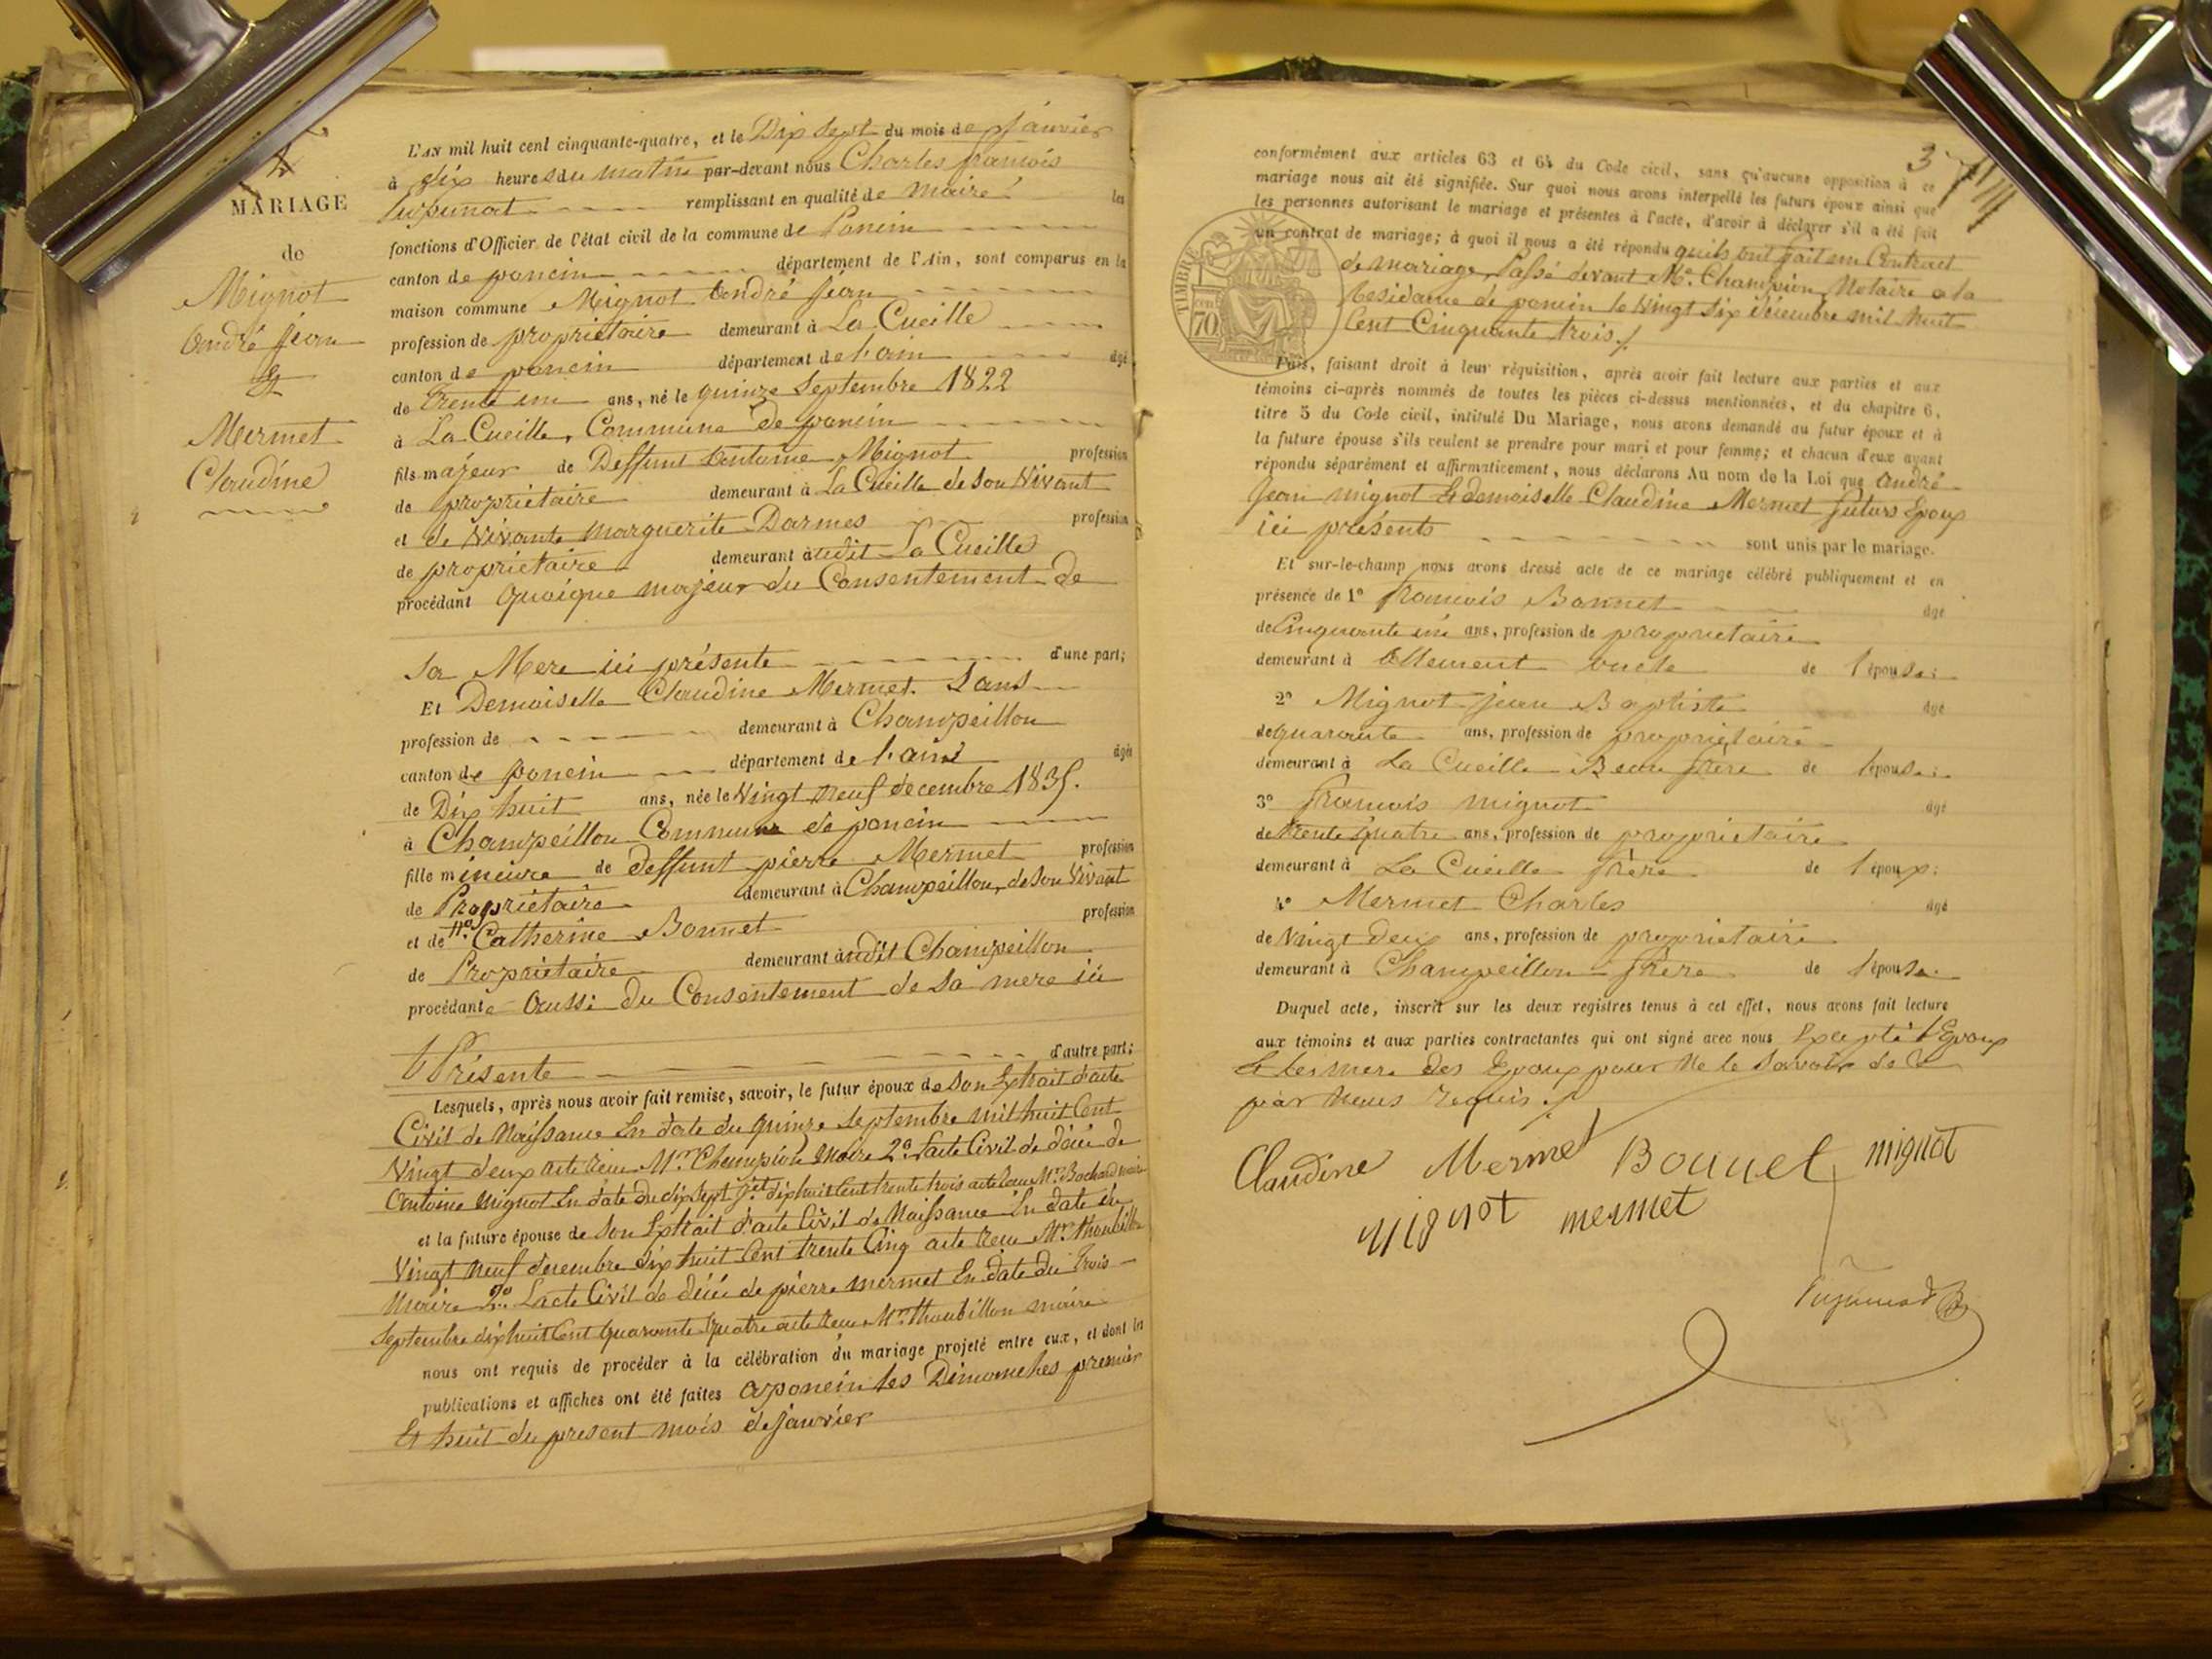 MARIAGE
de
Mignot
André Jean
&
Mermet
Claudine
L'AN mil huit cent cinquante-quatre, et le Dix Sept du mois de janvier
à dix heures du matin par-devant nous Charles françois
remplissant en qualité de maire les
fonctions d'Officier de l'état civil de la commune de Poncin
canton de poncin département de l'Ain, sont comparus en la
maison commune Mignot André Jean
profession de propriétaire demeurant à La Cueille
canton de poncin département de l'ain âgé
de trente un ans, né le quinze Septembre 1822
à La Cueille, Commune de poncin
fils majeur de Deffunt Antoine Mignot profession
de propriétaire demeurant à La Cueille de son Vivant
et de Vivante Marguerite Darmes profession
de propriétaire demeurant audit La Cueille
procédant quoique majeur du Consentement de
sa Mere ici présente d'une part;
Et Demoiselle Claudine Mermet Sans
profession de demeurant à Champeillon
canton de poncin département de l'ain âgée
de Dix huit ans, née le Vingt neuf decembre 1835.
à Champeillon Commune de poncin
fille mineure de deffunt pierre Mermet profession
de Propriétaire demeurant à Champeillon, de son Vivant
et de Catherine Bonnet profession
de Propriétaire demeurant audit Champeillon
procédante aussi du Consentement de sa mere ici
Présente d'autre part;
Lesquels, après nous avoir fait remise, savoir, le futur époux de son Extrait d'acte
Civil de Naissance En date du quinze Septembre mil huit Cent
Vingt deux acte reçu Mr. Champion Maire 2º. l'acte Civil de décé de
Antoine Mignot En date du dix Sept dix huit Cent trente trois acte reçu Mr. Bochard maire
et la future épouse de son Extrait d'acte Civil de Naissance En date du
Vingt neuf decembre dix huit Cent trente Cinq acte reçu Mr. Thoubillon
Maire 2º. L'acte Civil de décé de pierre mermet En date du Trois
Septembre dix huit Cent quarante quatre acte reçu Mr. Thoubillon maire
nous ont requis de procéder à la célébration du mariage projeté entre eux, et dont les
publications et affiches ont été faites a poncin les Dimanches premier
Et huit du present mois de janvier
3
conformément aux articles 63 et 64 du Code civil, sans qu'aucune opposition à ce
mariage nous ait été signifiée. Sur quoi nous avons interpellé les futurs époux ainsi que
les personnes autorisant le mariage et présentes à l'acte, d'avoir à déclarer s'il a été fait
un contrat de mariage; à quoi il nous a été répondu quils ont fait un Contract
de mariage, Passé devant Me. Champion, Notaire a la
Residance de poncin le Vingt Six décembre mil huit
Cent Cinquante trois./
TIMBRE
70
Puis, faisant droit à leur réquisition, après avoir fait lecture aux parties et aux
témoins ci-après nommés de toutes les pièces ci-dessus mentionnées, et du chapitre 6,
titre 5 du Code civil, intitulé Du Mariage, nous avons demandé au futur époux et à
la future épouse s'ils veulent se prendre pour mari et pour femme; et chacun d'eux ayant
répondu séparément et affirmativement, nous déclarons Au nom de la Loi que André
Jean Mignot & demoiselle Claudine Mermet futurs Epoux
ici présents sont unis par le mariage.
Et sur-le-champ nous avons dressé acte de ce mariage célébré publiquement et en
présence de 1º françois Bonnet âgé
de Cinquante un ans, profession de propriétaire
demeurant à Allement oncle de l'épouse;
2º Mignot jean Baptiste âgé
de quarante ans, profession de propriétaire
demeurant à La Cueille Beau frère de l'épouse;
3º françois mignot âgé
de trente quatre ans, profession de propriétaire
demeurant à La Cueille frère de l'époux;
4º Mermet Charles âgé
de Vingt deux ans, profession de propriétaire
demeurant à Champeillon frère de l'épouse.
Duquel acte, inscrit sur les deux registres tenus à cet effet, nous avons fait lecture
aux témoins et aux parties contractantes qui ont signé avec nous Excepté l'Epoux
& les mere des Epoux pour Ne le Savoir de Ce
par Nous requis./
Claudine Mermet Bonnet mignot
mignot mermet